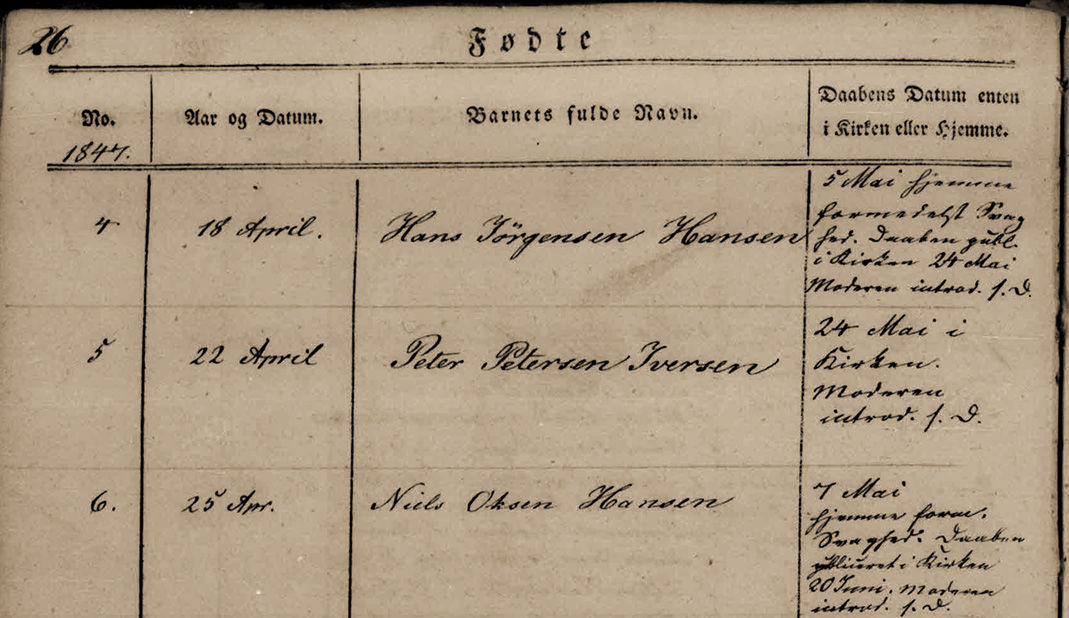 26
Fødte
No.
Aar og Datum.
Barnets fulde Navn.
Daabens Datum enten
i Kirken eller Hjemme.
1847.
4
18 April.
Hans Jörgensen Hansen
5 Mai hjemme
formedelst Svag
hed. Daaben publ.
i Kirken 24 Mai
Moderen introd. s. D.
5
22 April
Peter Petersen Iversen
24 Mai i
Kirken.
Moderen
introd. s. D.
6.
25 Apr.
Niels Oksen Hansen
7 Mai
hjemme form.
Svaghed. Daaben
publiceret i Kirken
20 Juni. Moderen
introd. s. D.